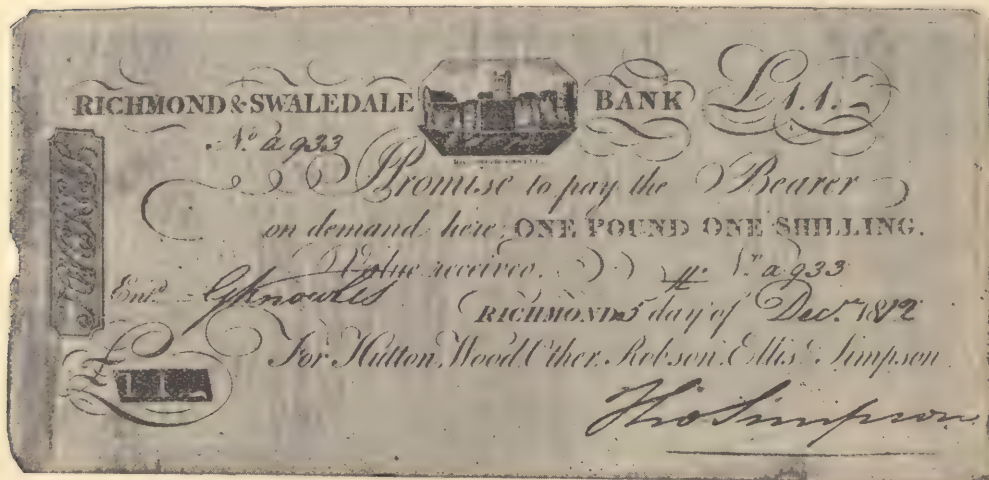 RICHMOND & SWALEDALE BANK £1.1.-
No a 933
I Promise to pay the Bearer
on demand here ONE POUND ONE SHILLING.
Value received. No a 933
Entd GKnowles
RICHMOND 5 day of Decr 1812
For Hutton Wood Other Robson Ellis & Simpson
£ 1 1
Tho Simpson